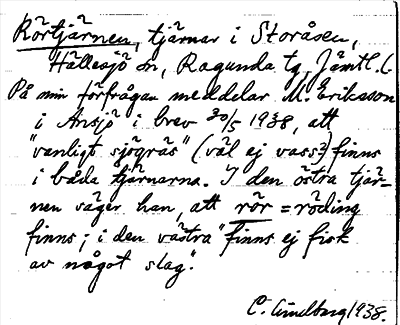 Rörtjärnen, tjärnar i Storåsen,
Hällesjö sn, Ragunda tg, Jämtl. l.
På min förfrågan meddelar M. Eriksson
i Ansjö i brev 30/5 1938, att
"vanligt sjögräs" (väl ej vass?) finns
i båda tjärnarna. I den östra tjär-
nen säger han, att rör = röding
finns; i den västra "finns ej fisk
av något slag".
C. Lindberg 1938.